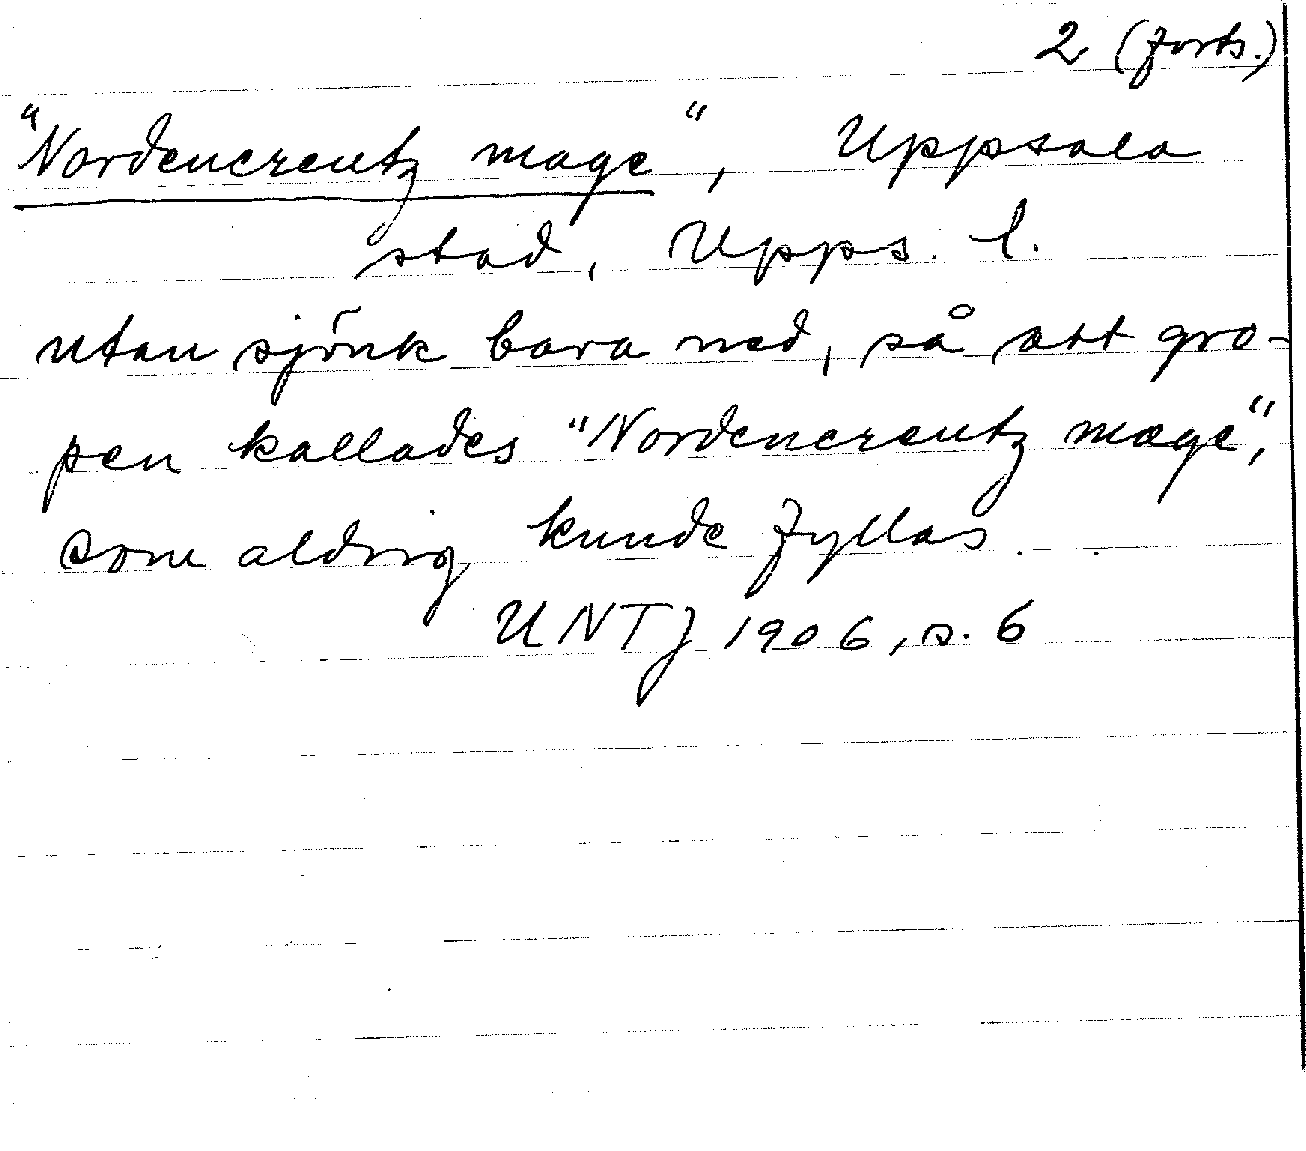 2 (forts.)
"Nordencreutz mage", Uppsala
stad, Upps. l.
utan sjönk bara ned, så att gro-
pen kallades "Nordencreutz mage",
som aldrig kunde fyllas.
UNTJ 1906, s. 6